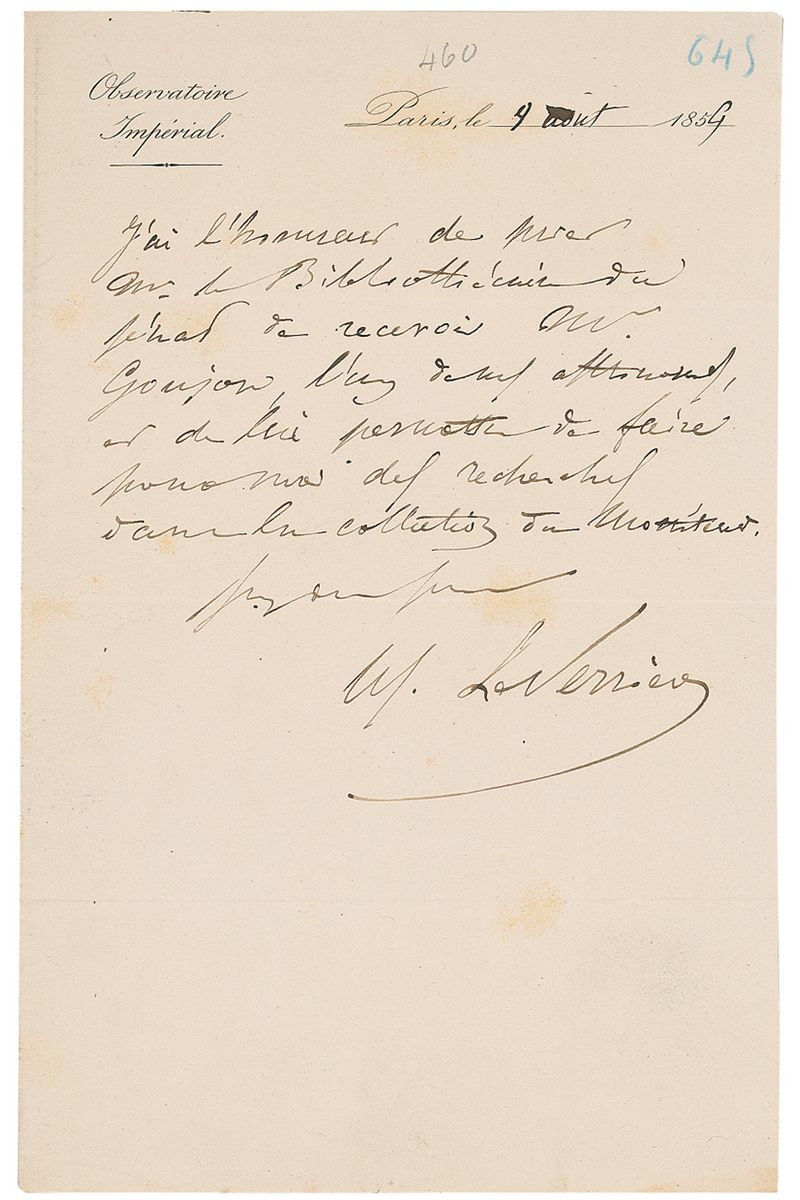 460
645
Observatoire
Impérial.
Paris, le 9 août 1854
J'ai l'honneur de prier
Mr. le Bibliothécaire du
sénat de recevoir Mr.
Goujon, l'un de nos astronomes,
et de lui permettre de faire
pour moi des recherches
dans la collection du Moniteur.
LeVerrier